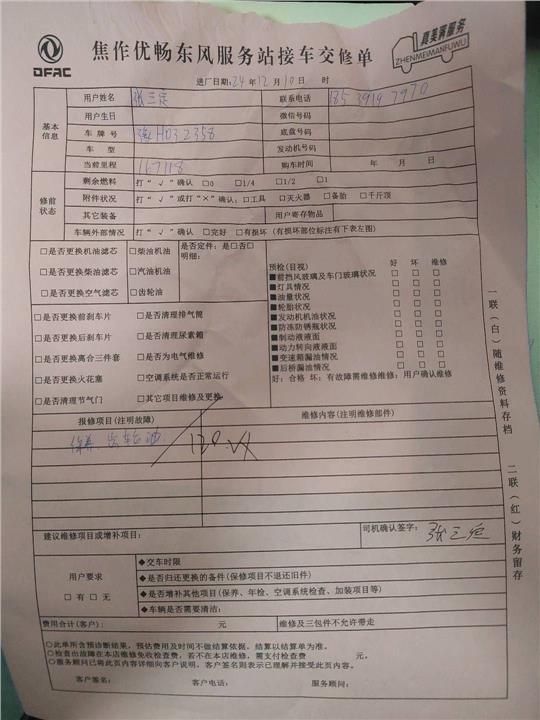 DFAC
焦作优畅东风服务站接车交修单
真美满服务
ZHENMEIMANFUWU
进厂日期:24年12月10日 时
基本信息
用户姓名 张三定 联系电话
用户生日 微信号码
车牌号 底盘号码
车型 发动机号码
当前里程 167118 购车时间 年 月 日
修前状态
剩余燃料 打“√”确认 □0 □1/4 □1/2 □1
附件状况 打“√”或打“×”确认:□工具 □灭火器 □备胎 □千斤顶
其它装备 用户寄存物品
车辆外部情况 打“√”确认 □完好 □有损坏(有损坏部位标注有下表左图)
□是否更换机油滤芯 □柴油机油 是否定件:是□否□
明细:
□是否更换柴油滤芯 □汽油机油
□是否更换空气滤芯 □齿轮油
□是否更换前刹车片 □是否清理排气筒
□是否更换后刹车片 □是否清理尿素箱
□是否更换离合三件套 □是否为电气维修
□是否更换火花塞 □空调系统是否正常运行
□是否清理节气门 □其它项目维修及更换
预检(目视) 好 坏 维修
■前挡风玻璃及车门玻璃状况 □ □ □
■灯具情况 □ □ □
■油量状况 □ □ □
■轮胎状况 □ □ □
■发动机机油状况 □ □ □
■防冻防锈瓶状况 □ □ □
■制动液液面 □ □ □
■动力转向液液面 □ □ □
■变速箱漏油情况 □ □ □
■后桥漏油情况 □ □ □
好:合格 坏:有故障需维修维修:用户确认维修
报修项目(注明故障) 维修内容(注明维修部件)
保养 齿轮油
建议维修项目或增补项目: 司机确认签字: 张三定
用户要求
□有 □无
◆交车时限
◆是否归还更换的备件(保修项目不退还旧件)
◆是否增补其他项目(保养、年检、空调系统检查、加装项目等)
◆车辆是否需要清洁:
费用合计(客户): 元 维修及三包件不允许带走
○此单所含预诊断结果,预估费用及时间不做结算依据,结算以结算单为准。
○检查出故障在本店维修免收检查费,若不在本店维修,需支付检查费 元。
○服务顾问已将此页内容详细向客户说明,客户签名则表示已理解并接受此页内容。
客户签名: 客户电话: 服务顾问:
一联(白)随维修资料存档
二联(红)财务留存